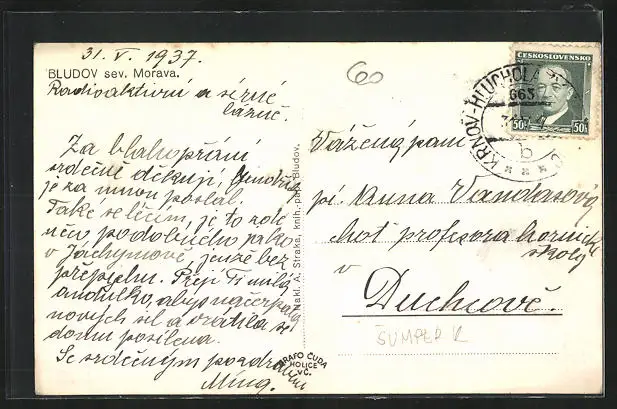 31. V. 1937.
BLUDOV sev. Morava.
Radioaktivní a sirné
lázně.
Za blahopřání
srdečně děkuji, Jindřich
je za mnou poslal.
Také se léčím, je to zde
něco podobného jako
v Jáchymově, jenže bez
přepychu. Přeji Ti milá
Andulko, abys načerpala
nových sil a vrátila se
domů posílena.
Se srdečným pozdravem
Nakl. A. Straka, knih.-pap. Bludov.
GRAFO ČUDA
HOLICE
VČ.
60
ČESKOSLOVENSKO
50h 50h
KRNOV-HLUCHOLAZY
663
b
Vážená paní
pí. Anna Vandasová
choť profesora hornické
školy
v
Duchcově.
ŠUMPERK